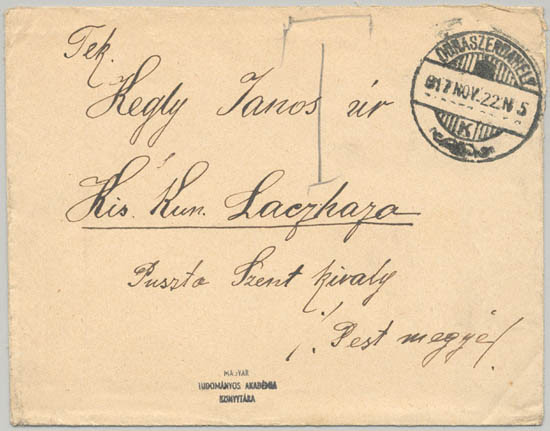 Tek.
Kegly Janos úr
Kis Kun. Laczhaza
Puszta Szent kiraly
/. Pest megye/
DUNASZERDAHELY
917 NOV. 22. N 5
K
MAGYAR
TUDOMÁNYOS AKADÉMIA
KÖNYVTÁRA